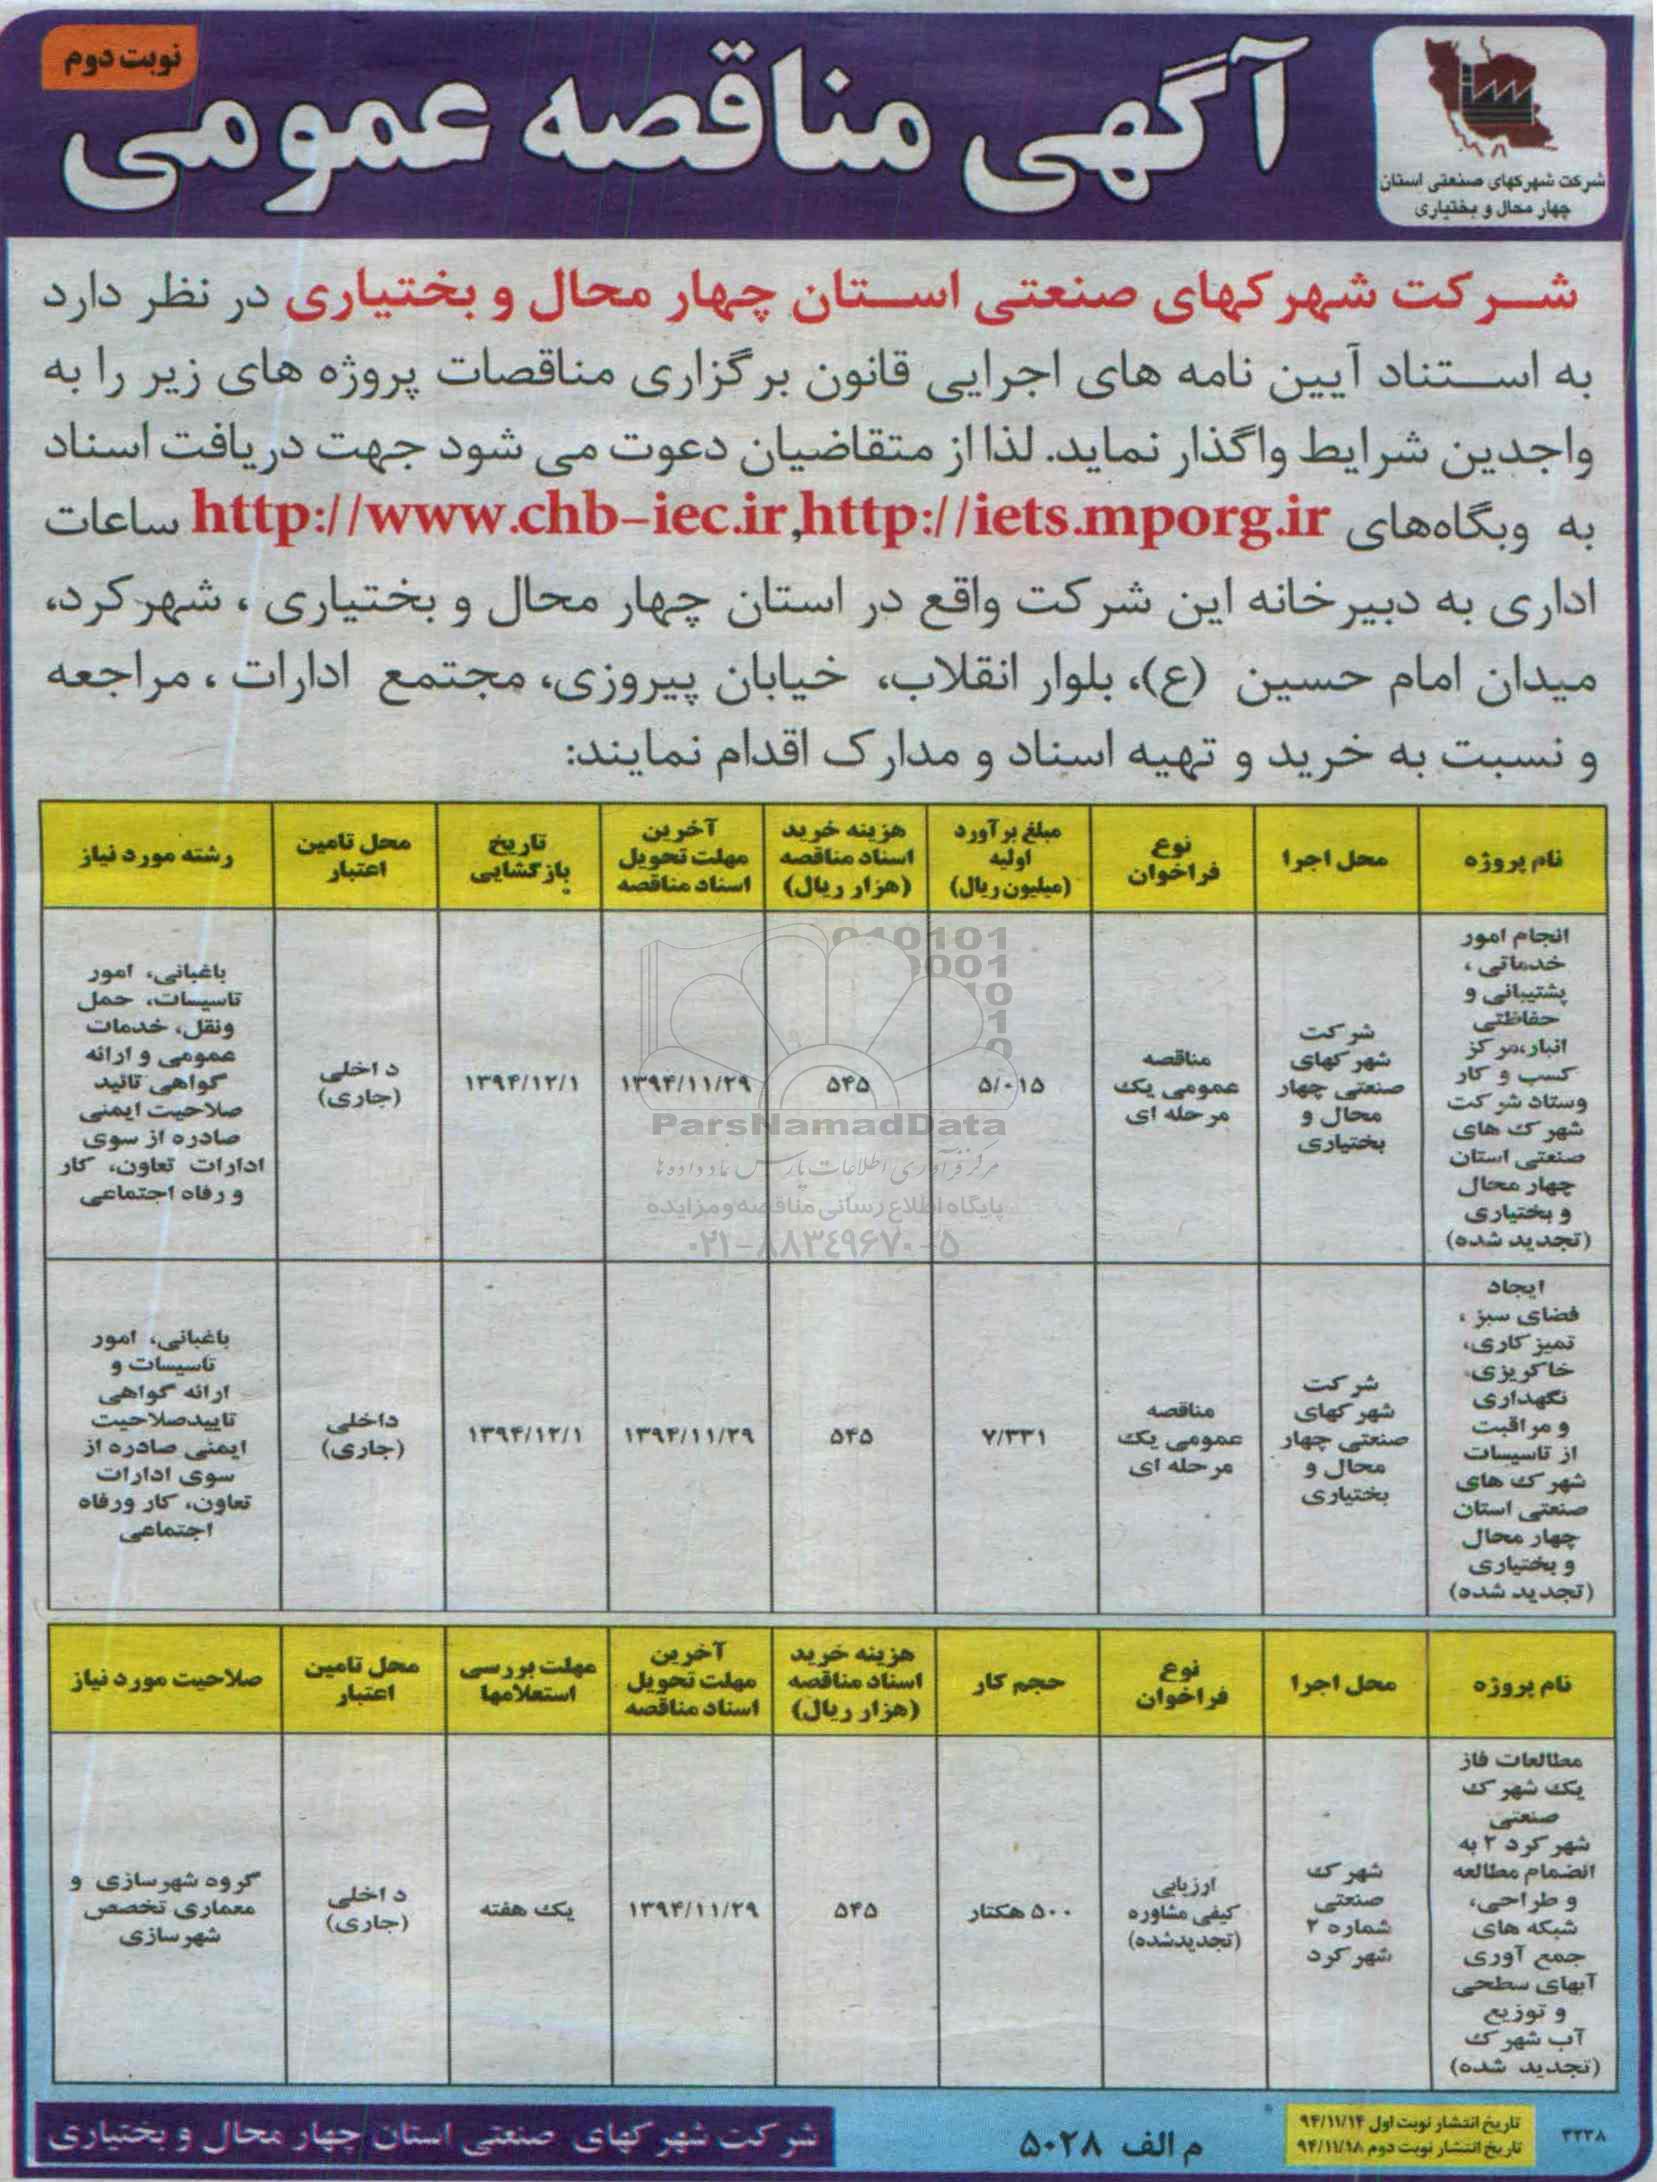 نوبت دوم
آگهی مناقصه عمومی
شرکت شهرکهای صنعتی استان
چهار محال و بختیاری
شرکت شهرکهای صنعتی استان چهار محال و بختیاری در نظر دارد
به استناد آیین نامه های اجرایی قانون برگزاری مناقصات پروژه های زیر را به
واجدین شرایط واگذار نماید. لذا از متقاضیان دعوت می شود جهت دریافت اسناد
به وبگاه‌های http://www.chb-iec.ir,http://iets.mporg.ir ساعات
اداری به دبیرخانه این شرکت واقع در استان چهار محال و بختیاری ، شهرکرد،
میدان امام حسین (ع)، بلوار انقلاب، خیابان پیروزی، مجتمع ادارات ، مراجعه
و نسبت به خرید و تهیه اسناد و مدارک اقدام نمایند:
نام پروژه
محل اجرا
نوع
فراخوان
مبلغ برآورد
اولیه
(میلیون ریال)
هزینه خرید
اسناد مناقصه
(هزار ریال)
آخرین
مهلت تحویل
اسناد مناقصه
تاریخ
بازگشایی
محل تامین
اعتبار
رشته مورد نیاز
انجام امور
خدماتی ،
پشتیبانی و
حفاظتی
انبار،مرکز
کسب و کار
وستاد شرکت
شهرک های
صنعتی استان
چهار محال
و بختیاری
(تجدید شده)
شرکت
شهرکهای
صنعتی چهار
محال و
بختیاری
مناقصه
عمومی یک
مرحله ای
۵/۰۱۵
۵۴۵
۱۳۹۴/۱۱/۲۹
۱۳۹۴/۱۲/۱
داخلی
(جاری)
باغبانی، امور
تاسیسات، حمل
ونقل، خدمات
عمومی و ارائه
گواهی تائید
صلاحیت ایمنی
صادره از سوی
ادارات تعاون، کار
و رفاه اجتماعی
ایجاد
فضای سبز ،
تمیز کاری،
خاکریزی،
نگهداری
و مراقبت
از تاسیسات
شهرک های
صنعتی استان
چهار محال
و بختیاری
(تجدید شده)
شرکت
شهرکهای
صنعتی چهار
محال و
بختیاری
مناقصه
عمومی یک
مرحله ای
۷/۳۳۱
۵۴۵
۱۳۹۴/۱۱/۲۹
۱۳۹۴/۱۲/۱
داخلی
(جاری)
باغبانی، امور
تاسیسات و
ارائه گواهی
تاییدصلاحیت
ایمنی صادره از
سوی ادارات
تعاون، کار ورفاه
اجتماعی
ParsNamadData
مرکز فرآوری اطلاعات پارس نماد داده ها
پایگاه اطلاع رسانی مناقصه و مزایده
۰۲۱-۸۸۳۴۹۶۷۰-۵
نام پروژه
محل اجرا
نوع
فراخوان
حجم کار
هزینه خرید
اسناد مناقصه
(هزار ریال)
آخرین
مهلت تحویل
اسناد مناقصه
مهلت بررسی
استعلامها
محل تامین
اعتبار
صلاحیت مورد نیاز
مطالعات فاز
یک شهرک
صنعتی
شهرکرد ۲ به
انضمام مطالعه
و طراحی،
شبکه های
جمع آوری
آبهای سطحی
و توزیع
آب شهرک
(تجدید شده)
شهرک
صنعتی
شماره ۲
شهرکرد
ارزیابی
کیفی مشاوره
(تجدیدشده)
۵۰۰ هکتار
۵۴۵
۱۳۹۴/۱۱/۲۹
یک هفته
داخلی
(جاری)
گروه شهرسازی و
معماری تخصص
شهرسازی
۳۲۳۸
تاریخ انتشار نوبت اول ۹۴/۱۱/۱۴
تاریخ انتشار نوبت دوم ۹۴/۱۱/۱۸
م الف ۵۰۲۸
شرکت شهرکهای صنعتی استان چهار محال و بختیاری